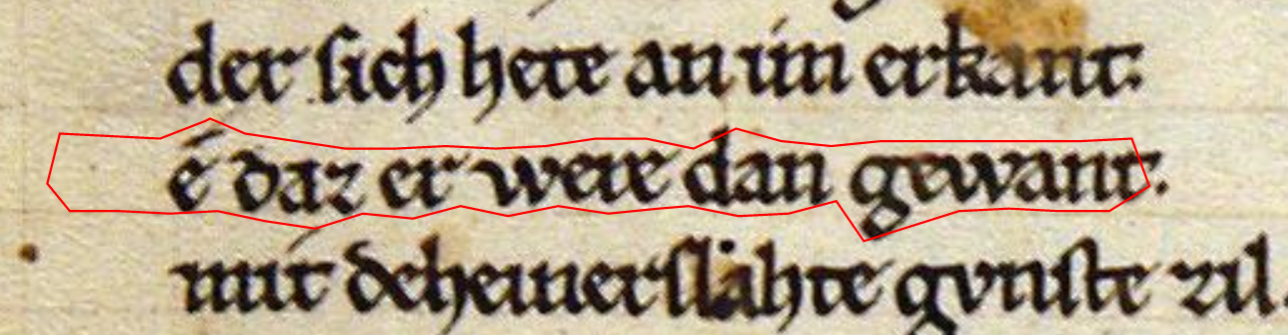 der sich hete an im erkant.
é daz er were dan gewant.
mit deheiner slahte gvnste zil